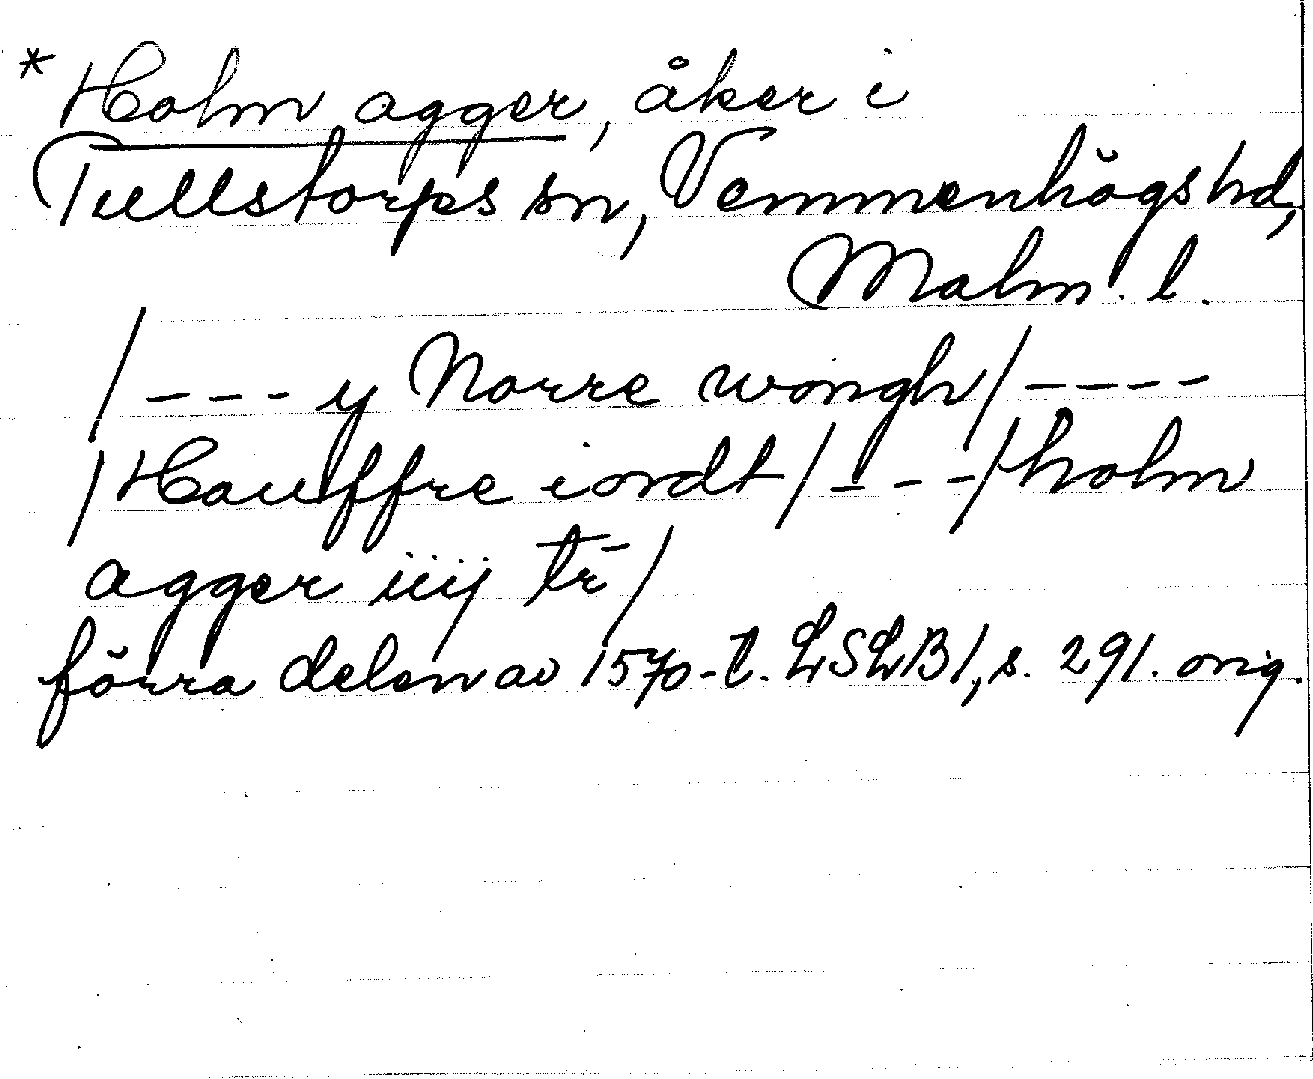 * Holm agger, åker i
Tullstorps sn, Vemmenhögs hd,
Malm. l.
/ - - - y Norre wongh / - - - -
/ Hauffre iordt / - - - / holm
agger iiij tr /
förra delen av 1570-t. LSLB1, s. 291. orig.